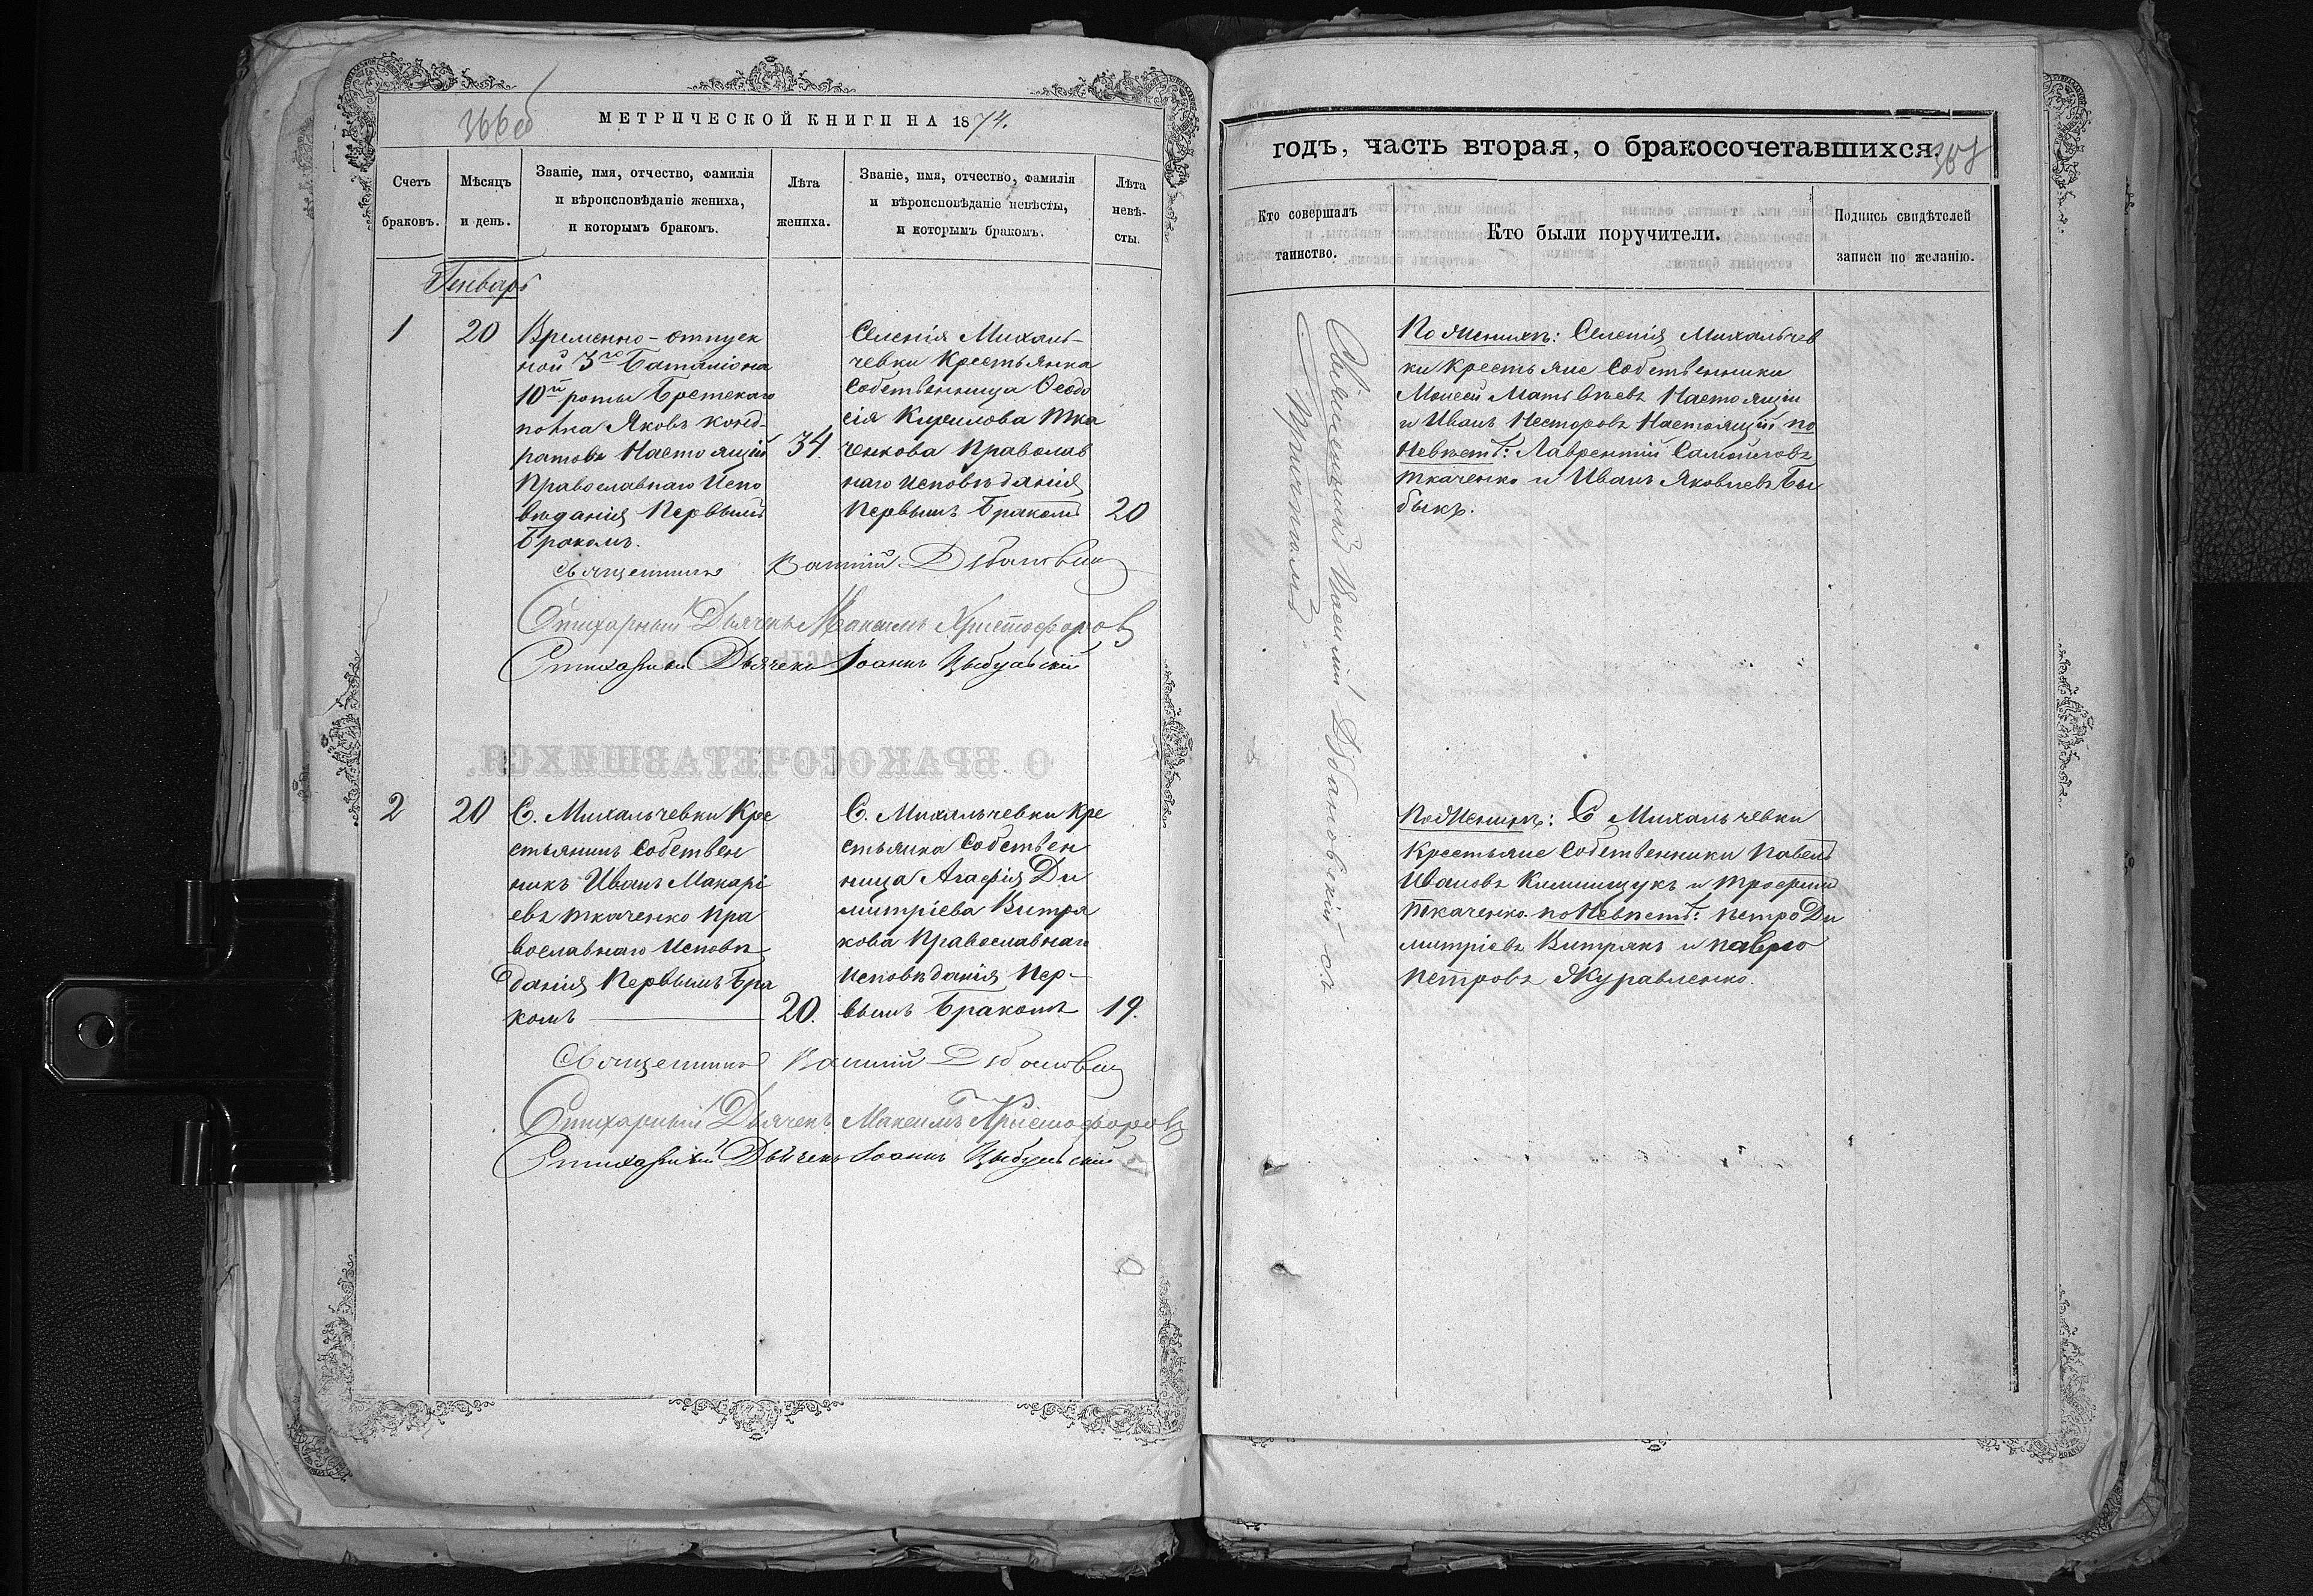 366об
МЕТРИЧЕСКОЙ КНИГИ НА 1874.
Счетъ браковъ.
Мѣсяцъ и день.
Званіе, имя, отчество, фамилія
и вѣроисповѣданіе жениха,
и которымъ бракомъ.
Лѣта жениха.
Званіе, имя, отчество, фамилія
и вѣроисповѣданіе невѣсты,
и которымъ бракомъ.
Лѣта невѣ-
сты.
Генварь
1
20
Временно-отпуск
ной 3го Баталіона
10й роты Брестскаго
полка Яковъ Конд-
ратовъ Настоящій
Православнаго Испо
вѣданія Первымъ
Бракомъ.
34.
Селенія Михаль-
чевки Крестьянка
Собственница Ѳеодо
сія Кирилова Тка
ченкова Православ
наго Исповѣданія
Первымъ Бракомъ
20
Священникъ Василій
Стихарный Дьячекъ Максимъ Христофоровъ
Стихарный Дьячекъ Іоаннъ Цыбульскій
2
20
С. Михальчевки Кре
стьянинъ Собствен
никъ Иванъ Макарі
евъ Ткаченко Пра
вославнаго Исповѣ
данія Первымъ Бра
комъ
20.
С. Михальчевки Кре
стьянка Собствен
ница Агафія Ди
митріева Витря
кова Православнаго
Исповѣданія Пер-
вымъ Бракомъ
19.
Священникъ Василій
Стихарный Дьячекъ Максимъ Христофоровъ
Стихарный Дьячекъ Іоаннъ Цыбульскій
годъ, часть вторая, о бракосочетавшихся.
Кто совершалъ
таинство.
Кто были поручители.
Подпись свидѣтелей
записи по желанію.
Священникъ Василій Дубановскій съ
причтомъ
По Женихѣ: Селенія Михальчев
ки Крестьяне Собственники
Моисей Матвѣевъ Настоящій
и Иванъ Несторовъ Настоящій по
Невѣстѣ: Лаврентій Самойловъ
Ткаченко и Иванъ Яковлевъ Бы
быкъ.
По Женихѣ: С Михальчевки
Крестьяне Собственники Павелъ
Ивановъ Климищукъ и Трофимъ
Ткаченко по Невѣстѣ: Петро Ди
митріевъ Витрякъ и Павло
Петровъ Журавленко.